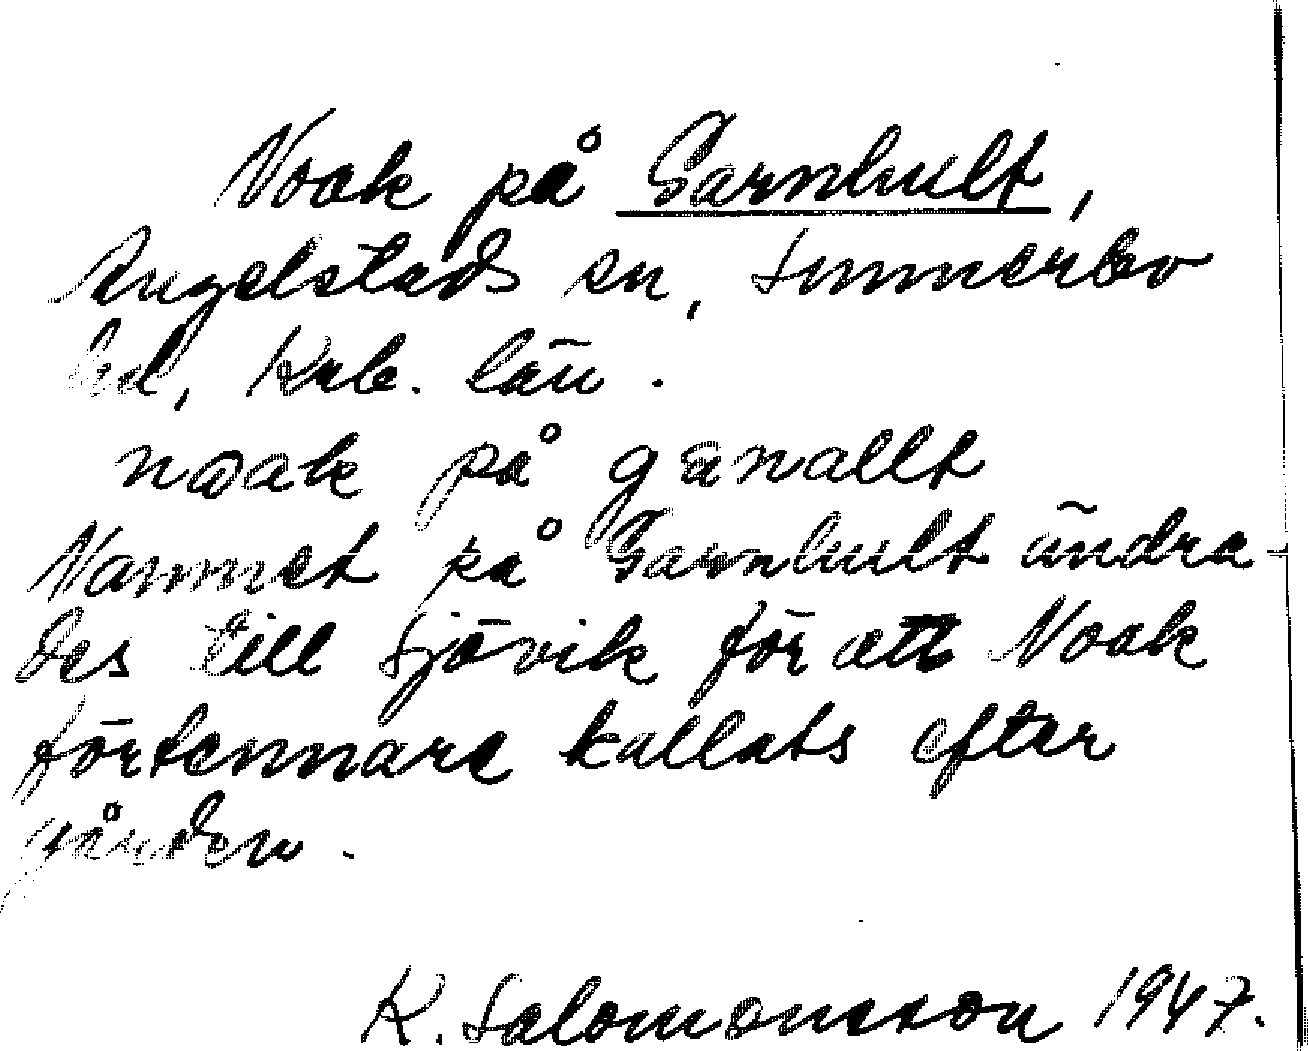 Noak på Garnhult,
Angelstads sn, Sunnerbo
hd, Krb. län.
noak på ganallt
Namnet på Garnhult ändra-
des till Sjövik för att Noak
förtennare kallats efter
gården.
K. Salomonsson 1947.